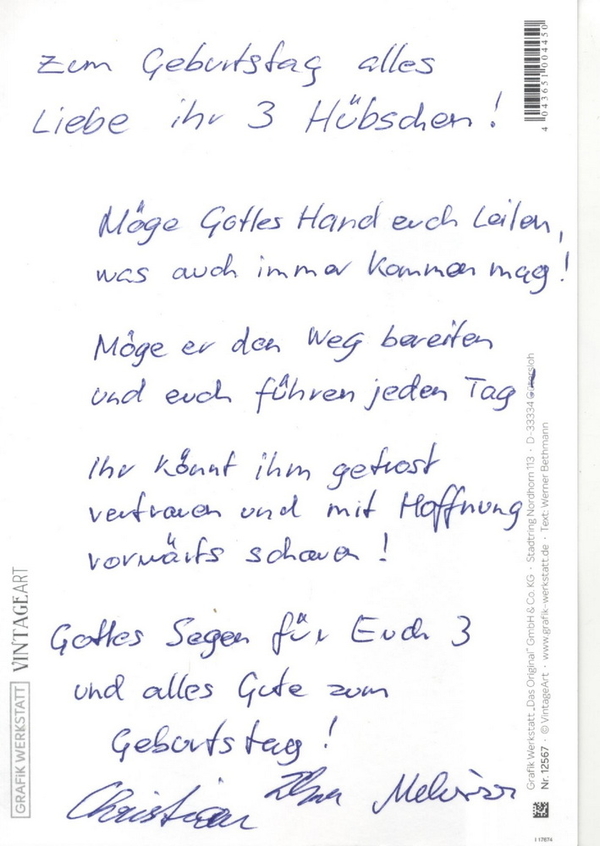 Zum Geburtstag alles
Liebe ihr 3 Hübschen!
Möge Gottes Hand euch Leiten,
was auch immer kommen mag!
Möge er den Weg bereiten
und euch führen jeden Tag!
Ihr könnt ihm getrost
vertrauen und mit Hoffnung
vorwärts schauen!
Gottes Segen für Euch 3
und alles Gute zum
Geburtstag!
Christian Melissa
4 043651 004450
Grafik Werkstatt „Das Original“ GmbH & Co. KG · Stadtring Nordhorn 113 · D-33334 Gütersloh
Nr. 12567 · © VintageArt · www.grafik-werkstatt.de · Text: Werner Bethmann
GRAFIK WERKSTATT VINTAGEART